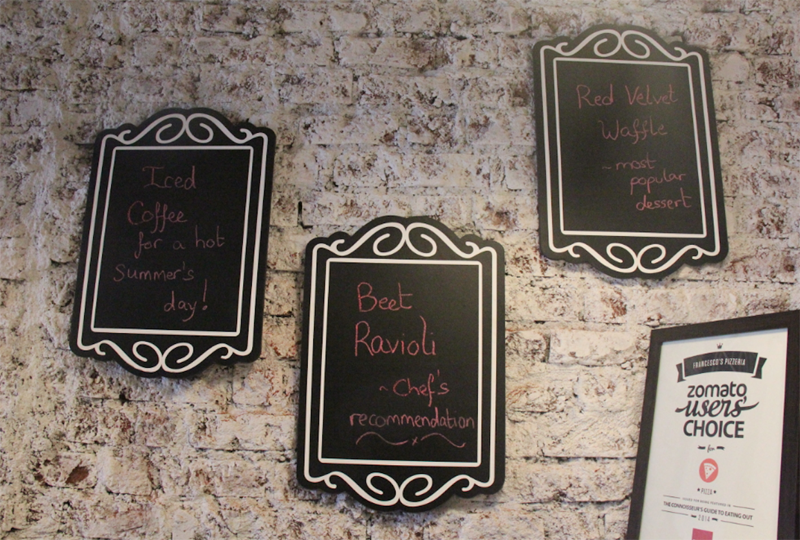 Iced
Coffee
for a hot
Summer's
day!
Beet
Ravioli
~ Chef's
recommendation
Red Velvet
Waffle
~ most
popular
dessert
FRANCESCO'S PIZZERIA
zomato
users'
CHOICE
for
PIZZA
THE CONNOISSEUR'S GUIDE TO EATING OUT
2014